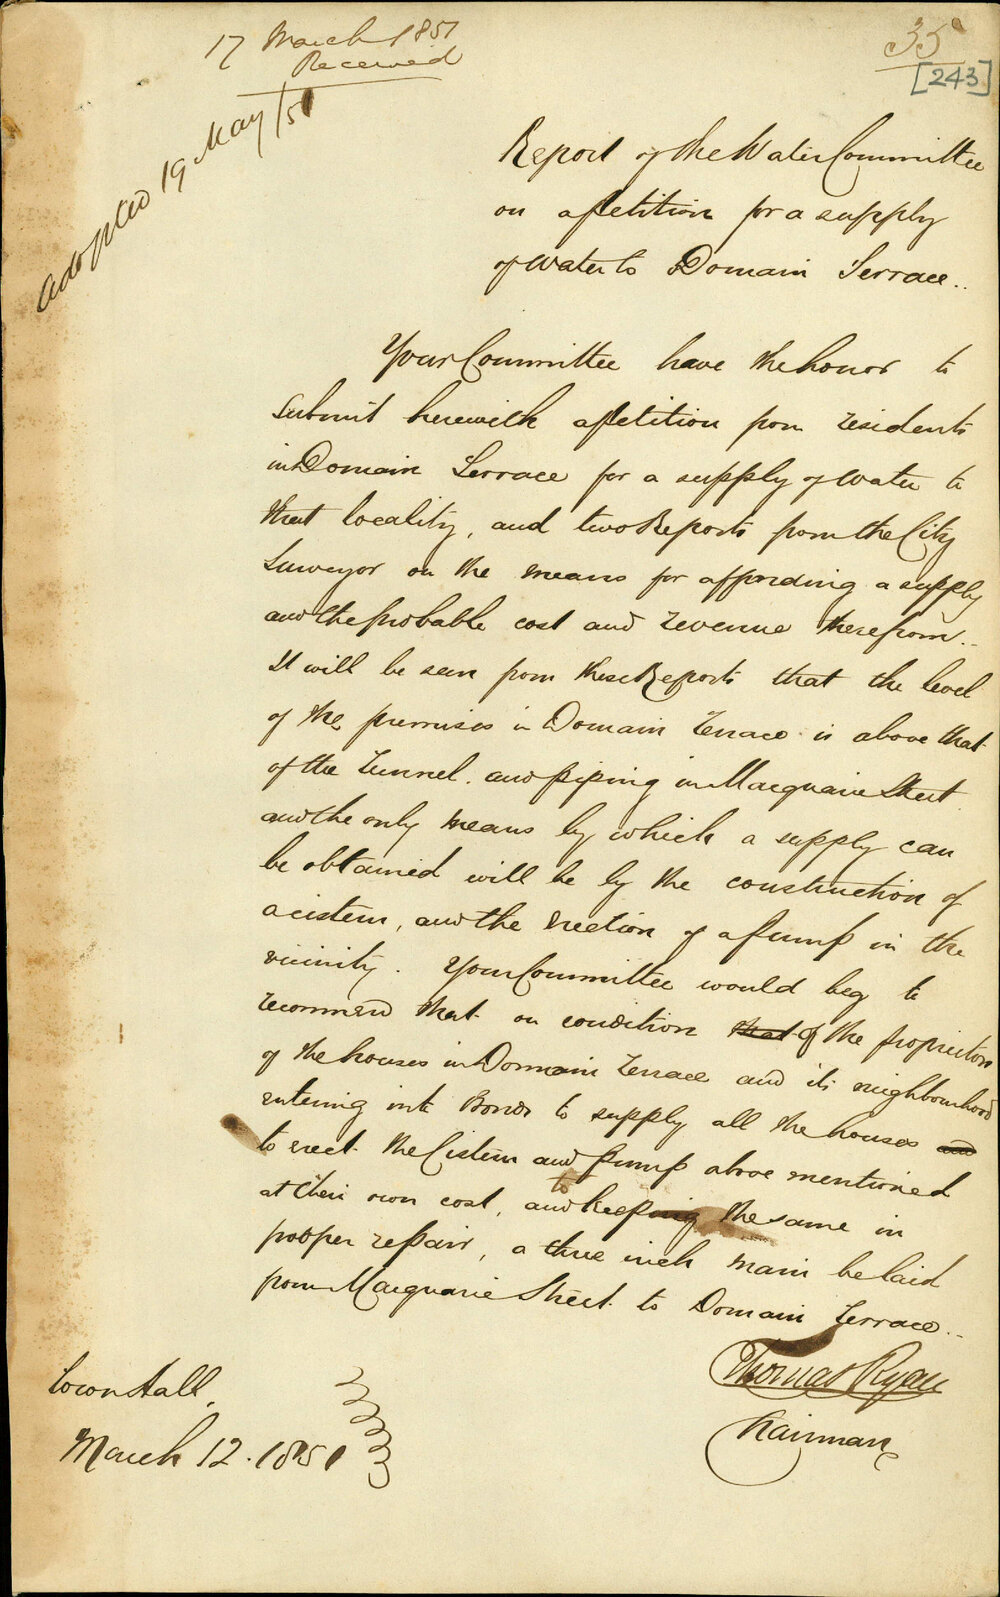 17 March 1851
Received
35
[243]
Adopted 19 May /51
Report of the Water Committee
on a Petition for a supply
of Water to Domain Terrace..
Your Committee have the honor to
submit herewith a Petition from residents
in Domain Terrace for a supply of Water to
that locality, and two Reports from the City
Surveyor on the means for affording a supply
and the probable cost and revenue therefrom..
It will be seen from these Reports that the level
of the premises in Domain Terrace is above that
of the Tunnel and piping in Macquarie Street
and the only means by which a supply can
be obtained will be by the construction of
a cistern, and the erection of a Pump in the
vicinity. Your Committee would beg to
recommend that on condition that of the proprietors
of the houses in Domain Terrace and its neighbourhood
entering into Bonds to supply all the houses and
to erect the Cistern and Pump above mentioned
at their own cost, and to keeping the same in
propper repair, a three inch main be laid
from Macquarie Street to Domain Terrace..
Thomas Ryan
Chairman
Town Hall,
March 12. 1851